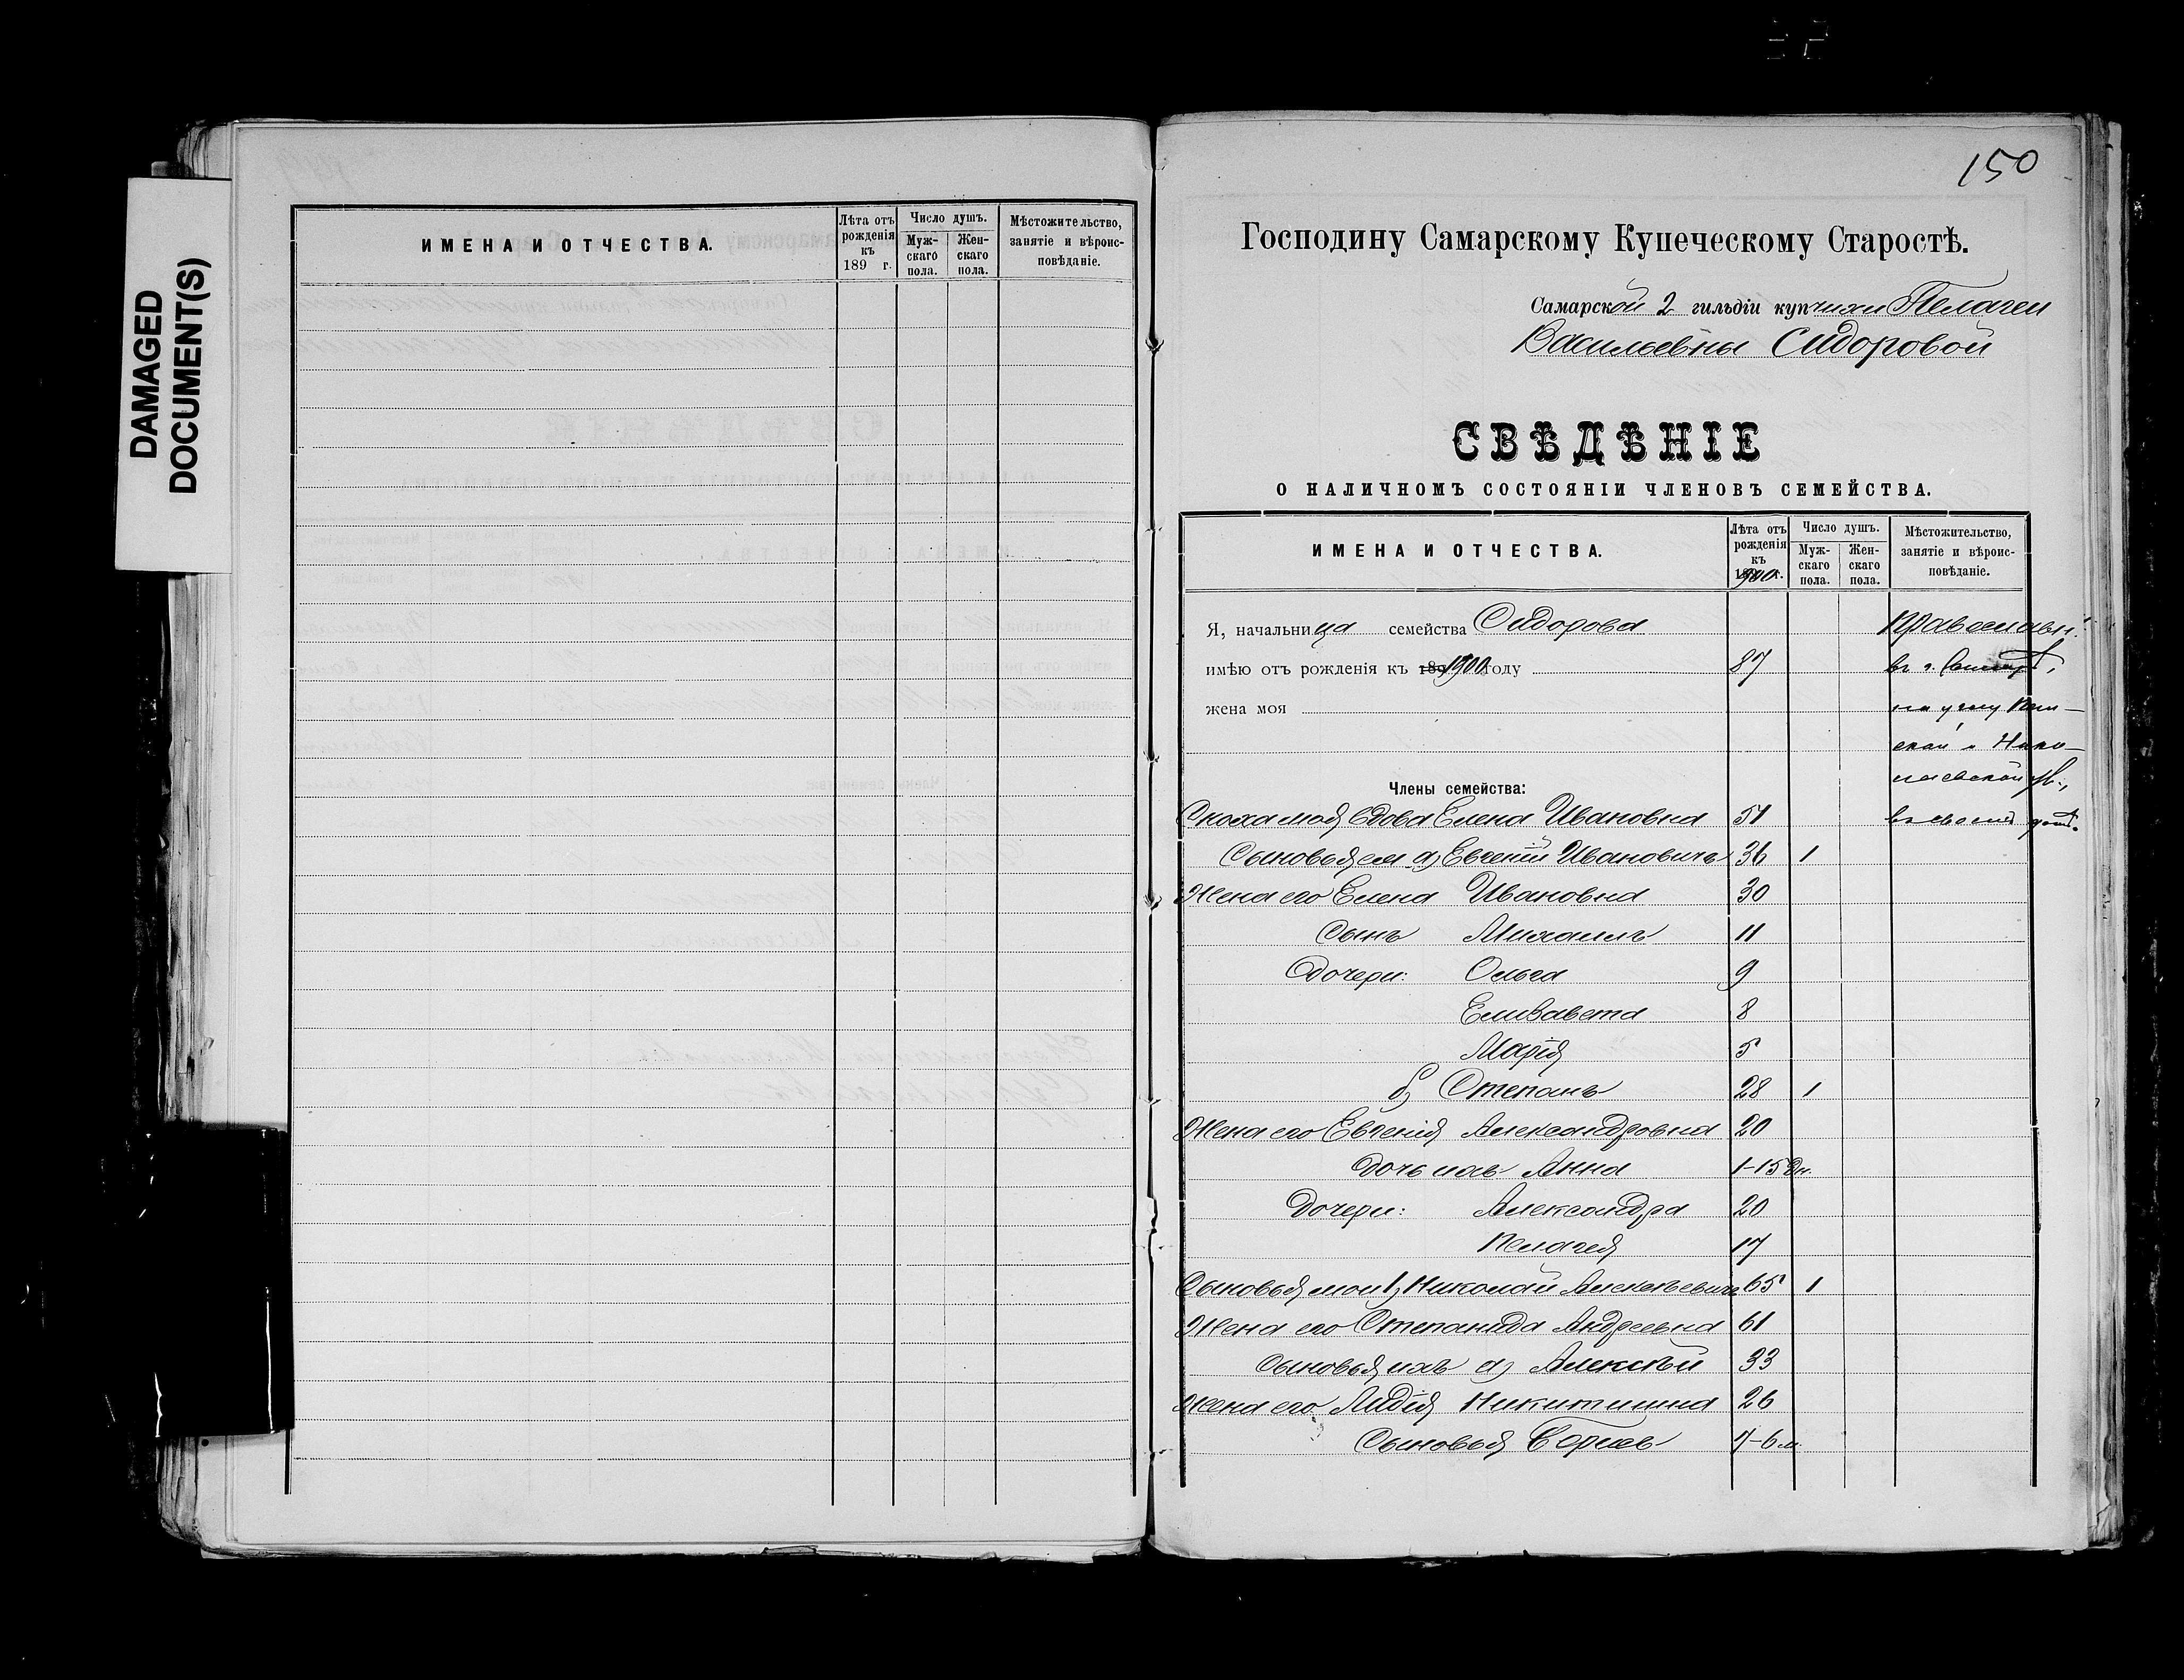 DAMAGED
DOCUMENT(S)
ИМЕНА И ОТЧЕСТВА.
Лѣта отъ рожденія къ 189 г.
Число душъ.
Мужскаго пола.
Женскаго пола.
Мѣстожительство, занятіе и вѣроисповѣданіе.
150
Господину Самарскому Купеческому Старостѣ.
Самарской 2 гильдіи купчихи Пелагеи
Васильевны Сидоровой
СВѢДѢНІЕ
О НАЛИЧНОМЪ СОСТОЯНІИ ЧЛЕНОВЪ СЕМЕЙСТВА.
ИМЕНА И ОТЧЕСТВА.
Лѣта отъ рожденія къ 1900 г.
Число душъ.
Мужскаго пола.
Женскаго пола.
Мѣстожительство, занятіе и вѣроисповѣданіе.
Я, начальница семейства Сидорова Православн.
имѣю отъ рожденія къ 1900 году 87 въ г. Самарѣ,
жена моя на углу Пан-
ской и Нико-
лаевской ул.,
Члены семейства:
Сноха моя вдова Елена Ивановна 51 въ своемъ домѣ.
Сыновья ея а) Евгеній Ивановичъ 36 1
Жена его Елена Ивановна 30
Сынъ Михаилъ 11
Дочери: Ольга 9
Елизавета 8
Марія 5
б) Степанъ 28 1
Жена его Евгенія Александровна 20
Дочь ихъ Анна 1-15 дн.
Дочери: Александра 20
Пелагея 17
Сыновья мои 1) Николай Алексѣевичъ 65 1
Жена его Степанида Андреевна 61
Сыновья ихъ а) Алексѣй 33
Жена его Лидія Никитишна 26
Сыновья Борисъ 4-6 м.